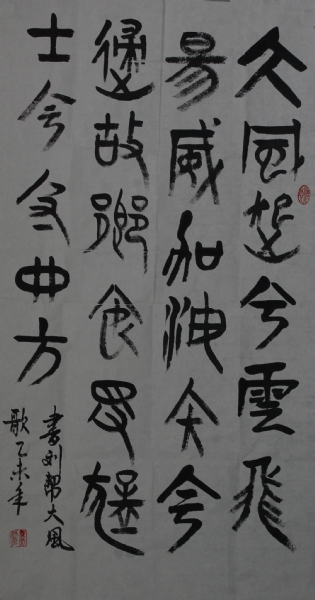 大風起兮雲飛
昜威加海内兮
歸故鄉安得猛
士兮守四方
書刘幫大風
歌乙未年